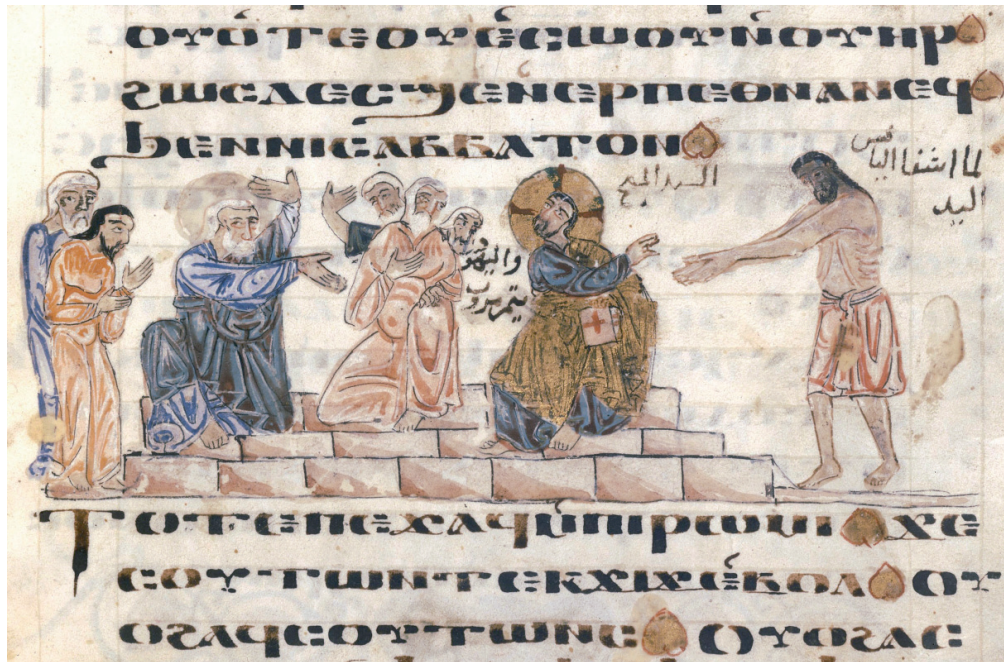 ⲟⲩⲟ̀ⲧⲉⲟⲩⲉ̀ⲥⲱⲟⲩⲛ̀ⲟⲩⲏⲣ
ϩⲱⲥⲇⲉⲥϣⲉⲛ̀ⲉⲣⲡⲉⲑⲛⲁⲛⲉϥ
ϧⲉⲛⲛⲓⲥⲁⲃⲃⲁⲧⲟⲛ
لما اشفا اليابس
اليد
السيد المسيح
واليهود
ⲧⲟⲧⲉⲡⲉϫⲁϥⲙ̀ⲡⲓⲣⲱⲙⲓ ϫⲉ
ⲥⲟⲩⲧⲱⲛⲧⲉⲕϫⲓϫⲉ̀ⲃⲟⲗ ⲟⲩ
ⲟϩⲁϥⲥⲟⲩⲧⲱⲛⲥ ⲟⲩⲟϩⲁⲥ